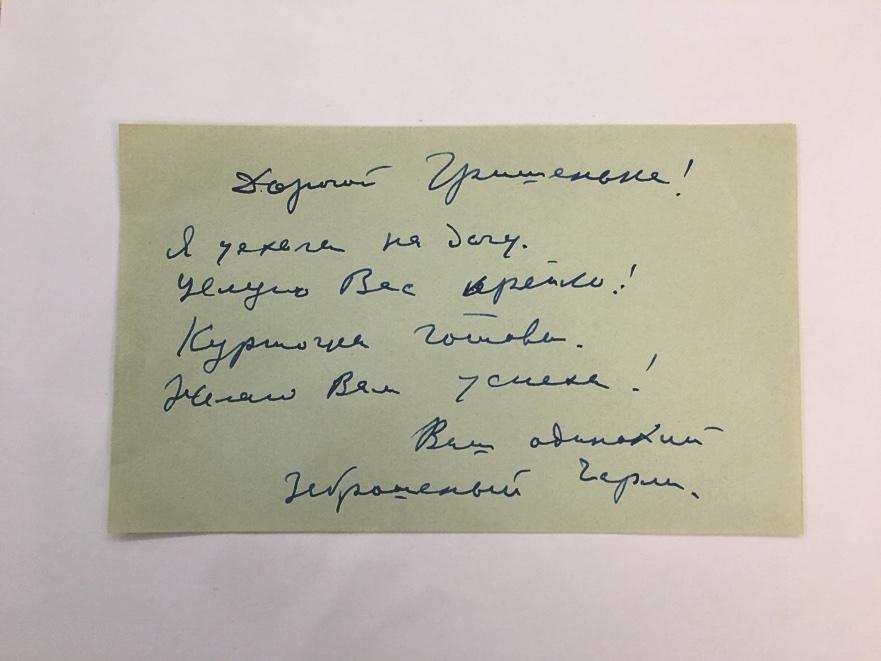 Дорогой Гришенька!
Я уехала на дачу.
Целую Вас крепко!
Курточка готова.
Желаю Вам успеха!
Ваш одинокий
Заброшеный Чарли.